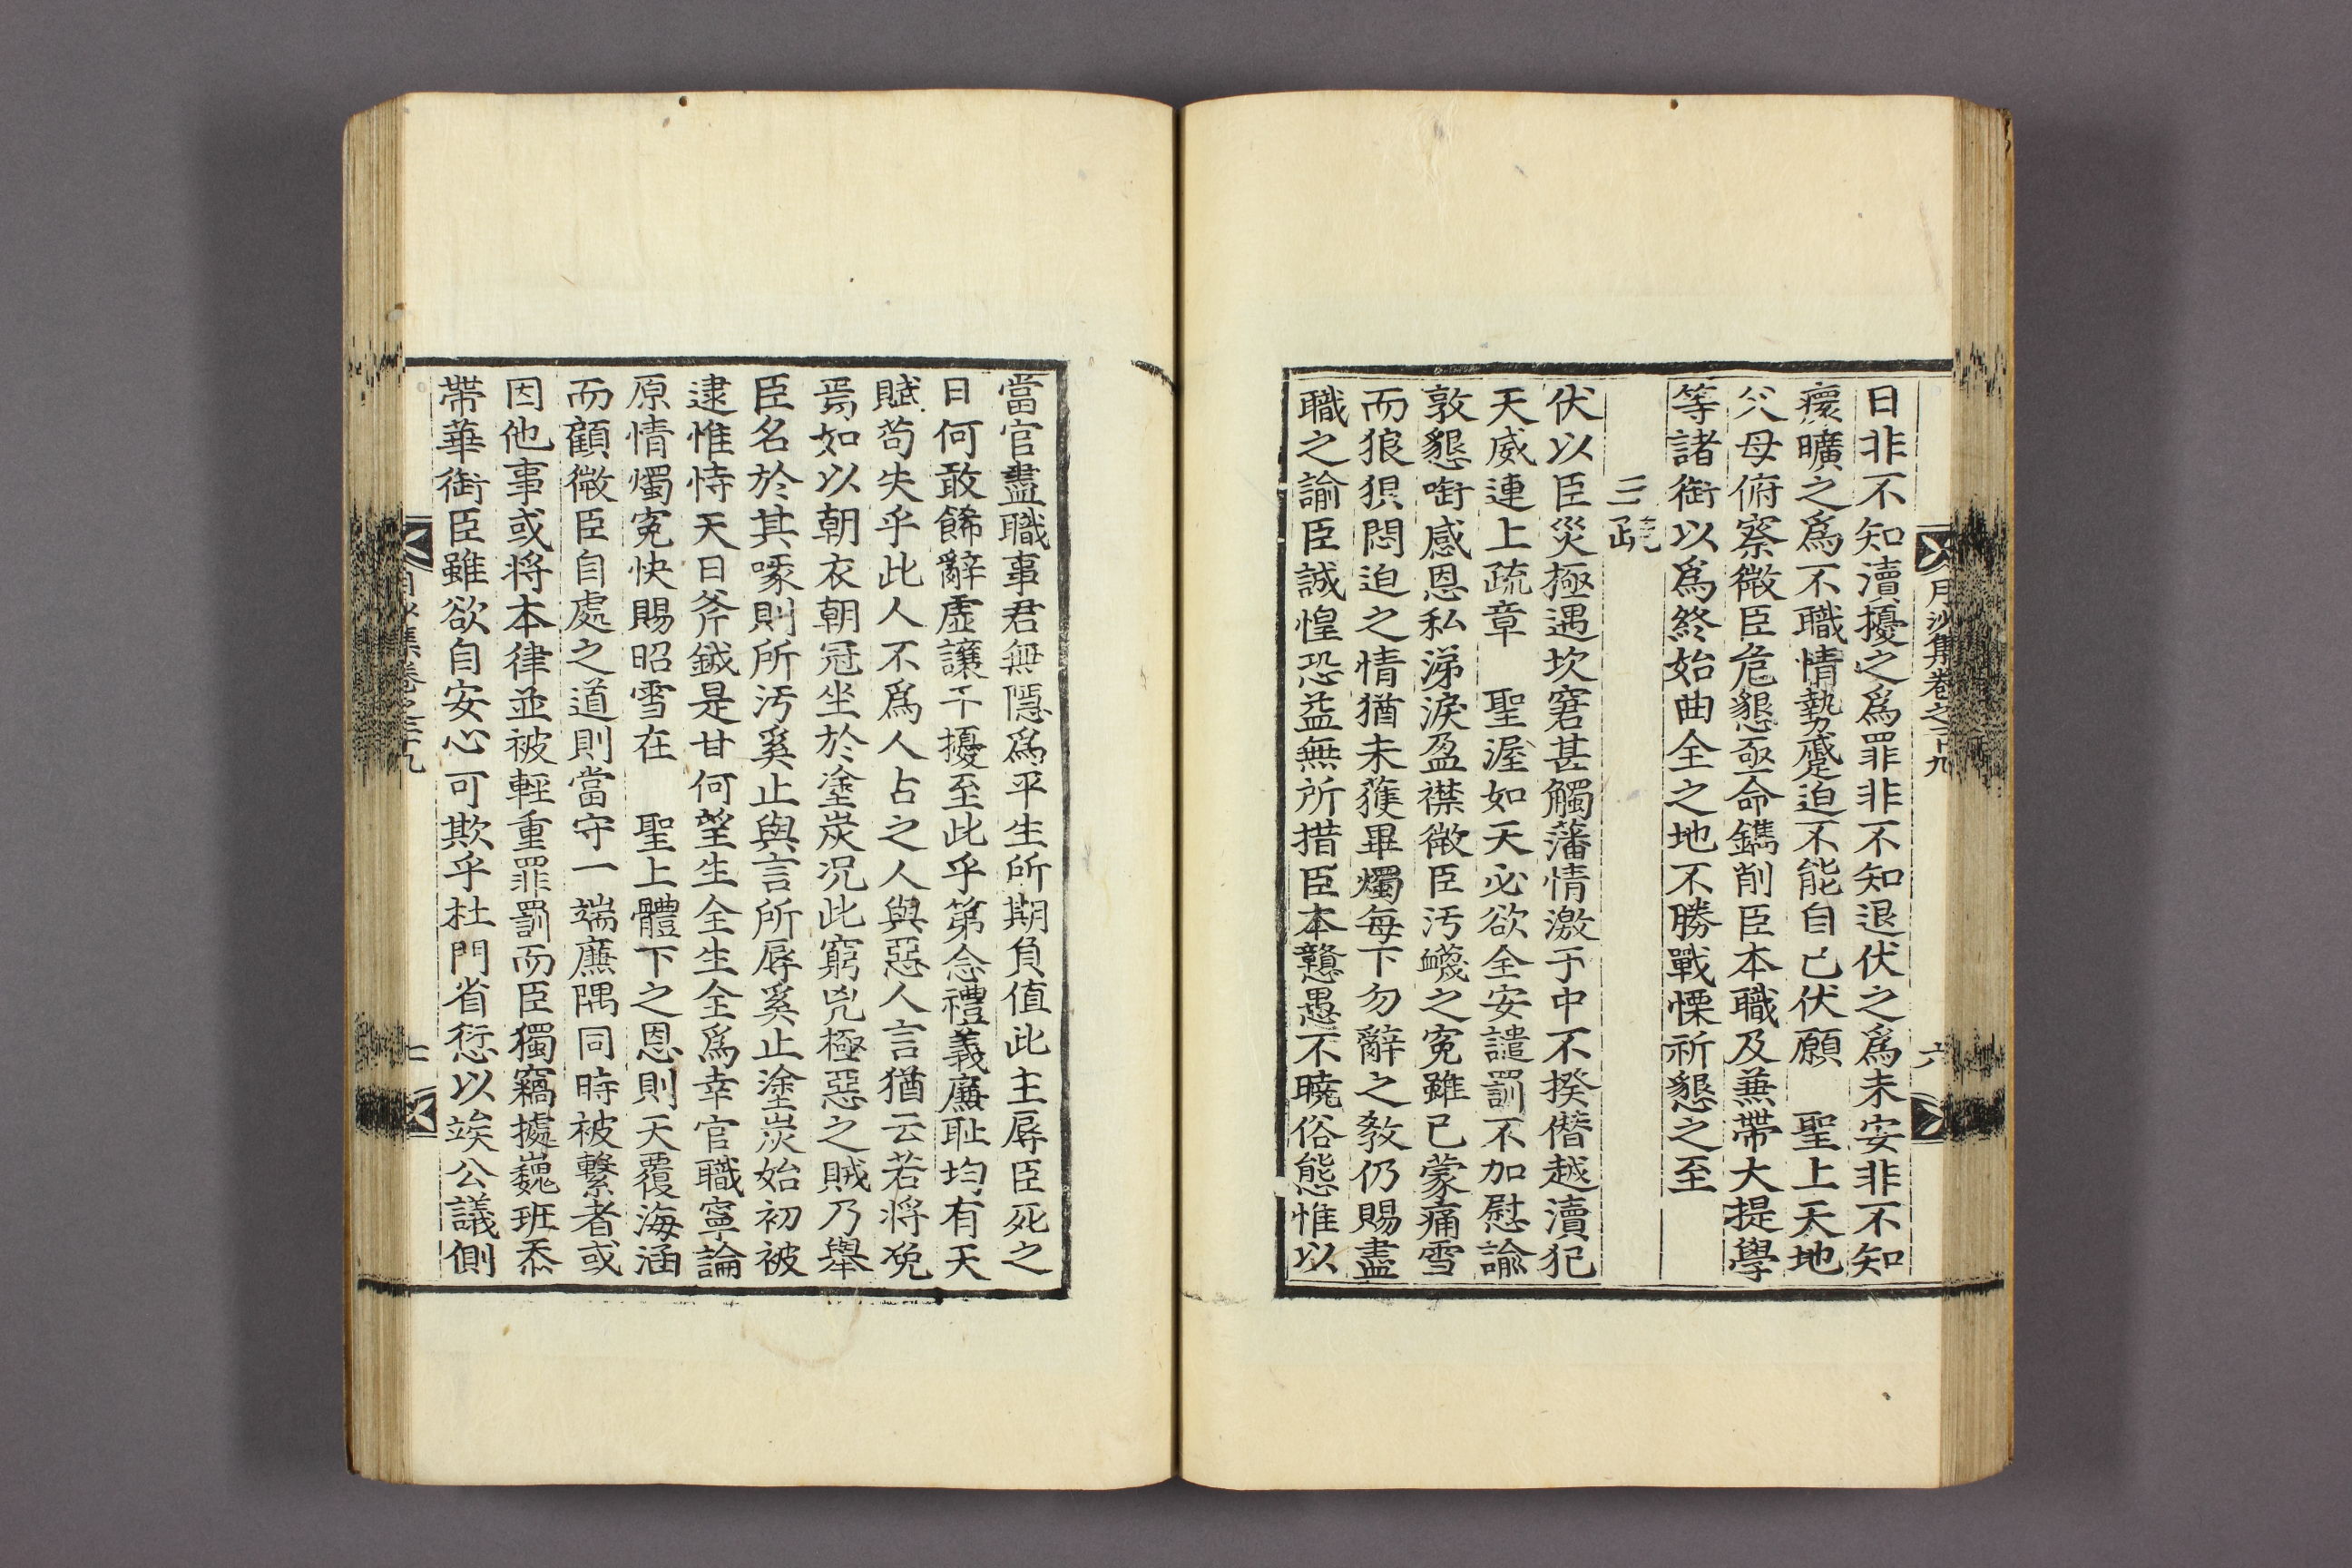 月沙集卷之二十九 六
日非不知瀆擾之爲罪非不知退伏之爲未安非不知
瘝曠之爲不職情勢蹙迫不能自已伏願 聖上天地
父母俯察微臣危懇亟命鐫削臣本職及兼帶大提學
等諸銜以爲終始曲全之地不勝戰慄祈懇之至
三疏
伏以臣災極遇坎窘甚觸藩情激于中不揆僭越瀆犯
天威連上疏章 聖渥如天必欲全安譴罰不加慰諭
敦懇啣感恩私涕淚盈襟微臣汚衊之冤雖已蒙痛雪
而狼狽悶迫之情猶未獲畢燭每下勿辭之敎仍賜盡
職之諭臣誠惶恐益無所措臣本戇愚不曉俗態惟以
當官盡職事君無隱爲平生所期負值此主辱臣死之
日何敢餙辭虛讓干擾至此乎第念禮義廉耻均有天
賦苟失乎此人不爲人占之人與惡人言猶云若將浼
焉如以朝衣朝冠坐於塗炭况此窮兇極惡之賊乃舉
臣名於其喙則所汚奚止與言所辱奚止塗炭始初被
逮惟恃天日斧鉞是甘何望生全生全爲幸官職寧論
原情燭冤快賜昭雪在 聖上體下之恩則天覆海涵
而顧微臣自處之道則當守一端廉隅同時被繫者或
因他事或將本律並被輕重罪罰而臣獨竊據巍班忝
帶華銜臣雖欲自安心可欺乎杜門省愆以竢公議側
集卷之二十九 七